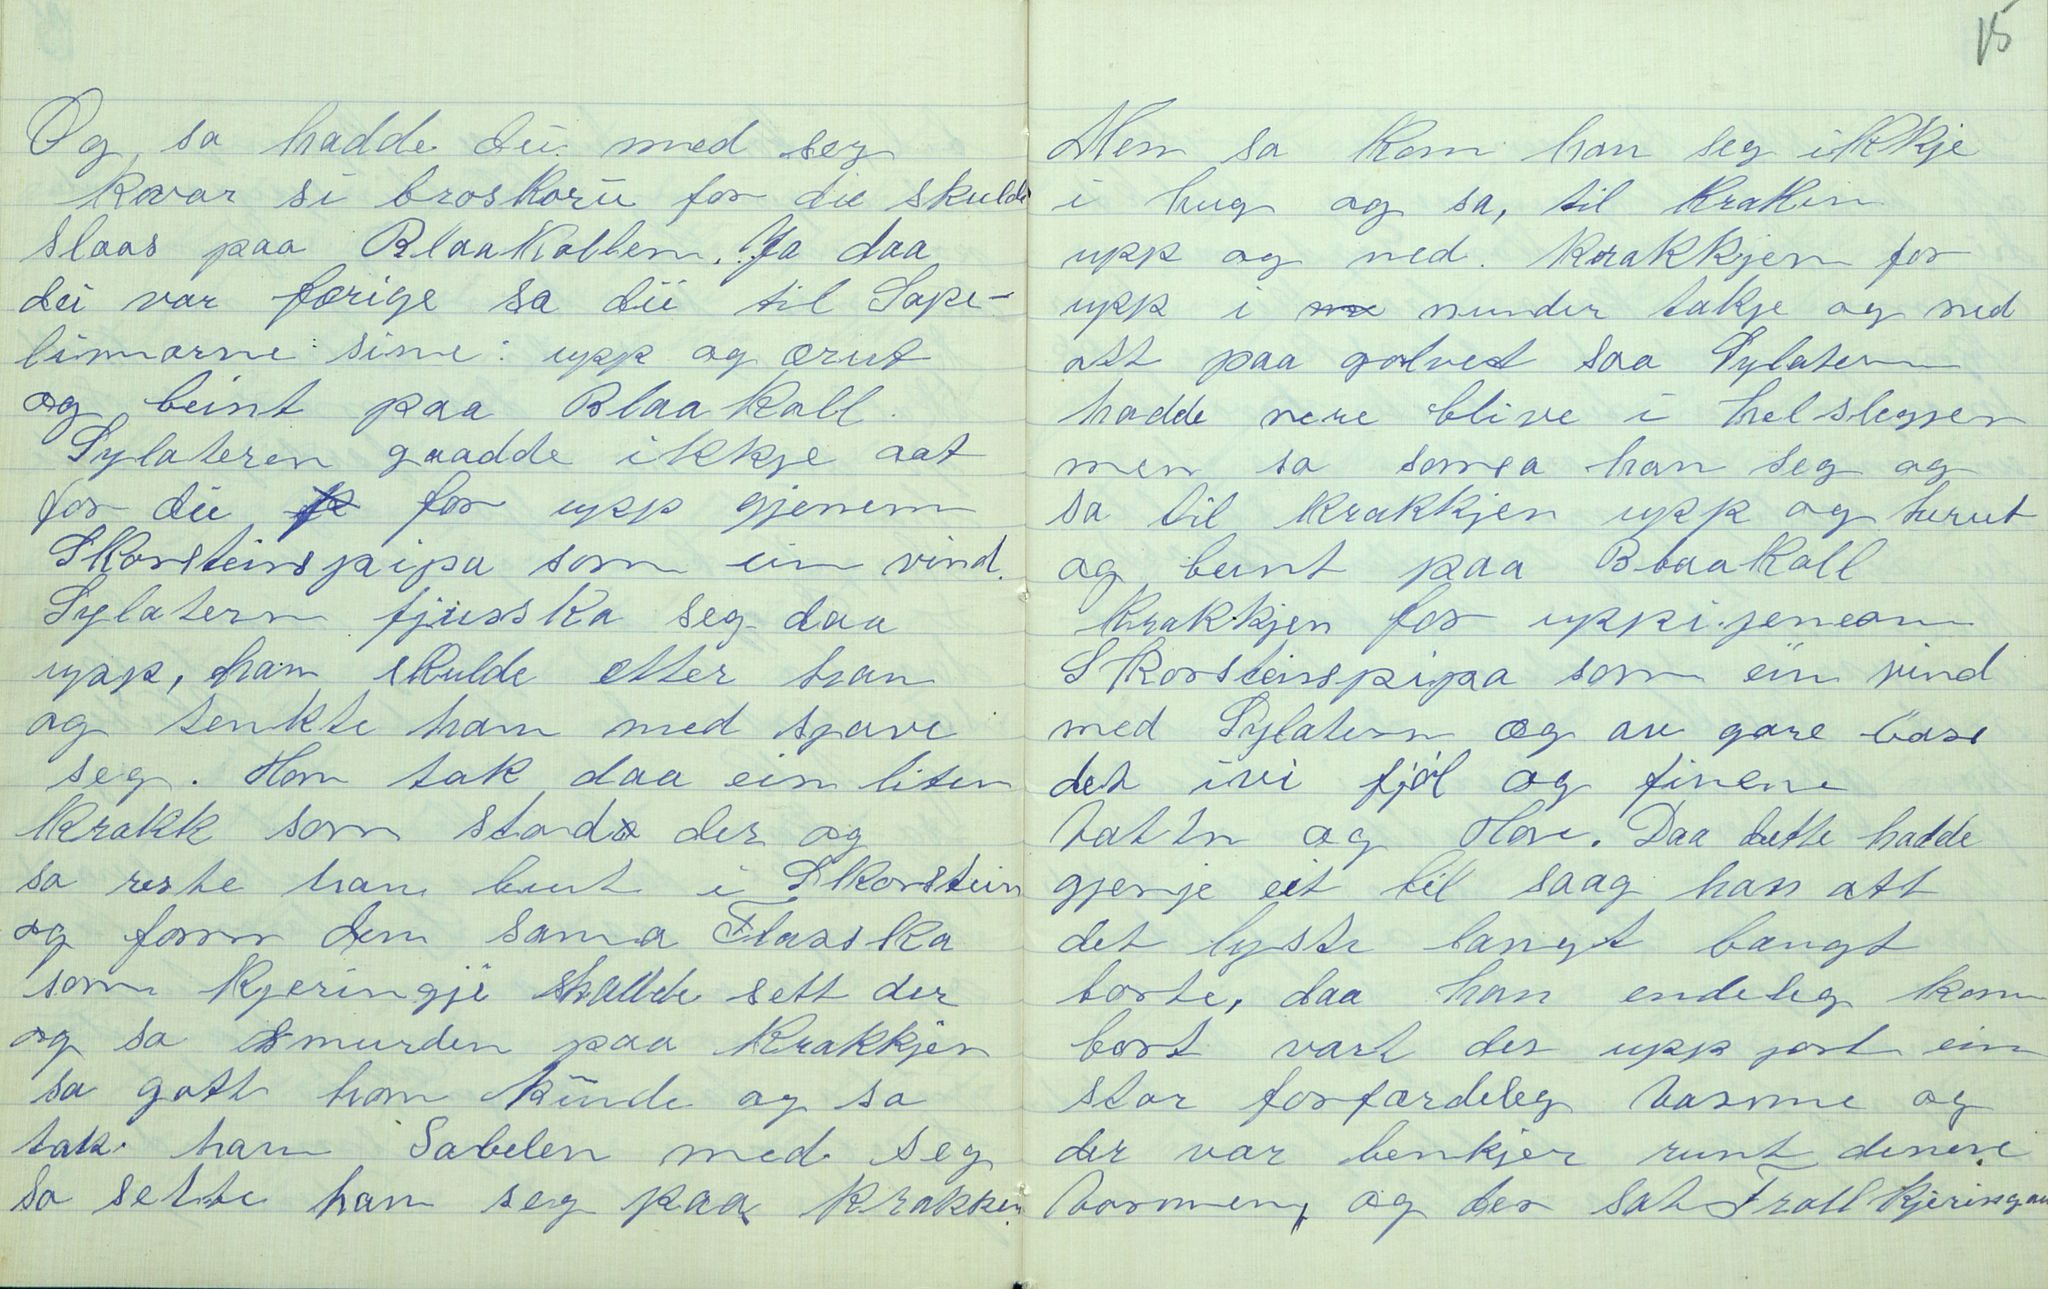 Og, sa hadde dei med seg
kvar si broskoru for die skulde
slaas paa Blaakollen. Ja daa
dei var færige sa dii til Sope-
limarne sine: upp og ærut
og beint paa Blaakoll.
Sylateren gaadde ikkje aat
for die for upp gjenem
Skorsteinspipa som ein vind.
Sylatern fjusska seg daa
upp, han skulde etter han
og tenkte han med sjave
seg. Han tak daa ein liten
krakk som stod der og
sa reste han beint i Skorstein
og fonn den sama Flasska
som kjeringji hadde sett der
og sa smurden paa krakkjen
sa gott han kunde og sa
tak han Sabelen med seg
sa sette han seg paa krakken
15
Men sa kom han seg ikkje
i hug og sa, til krakin
upp og ned. krakkjen for
upp i nunder takje og ned
att paa golvet saa Sylatern
hadde nere blive i helslegjen
men sa sansa han seg og
sa til krakkjen upp og turut
og beint paa Blaakoll
krakkjen for upp i jeneom
Skorsteinspipa som ein vind
med Sylatern og av gare bar
det ivi fjøl og finene
Vatn og Hav. Daa dette hadde
gjenje eit bil saag han att
det lyste langt langt
borte, daa han endeleg kom
bort vart der upp jort ein
stor forfærdeleg varme og
der var benkjer runt denne
varmen, og der sat Trollkjeringan